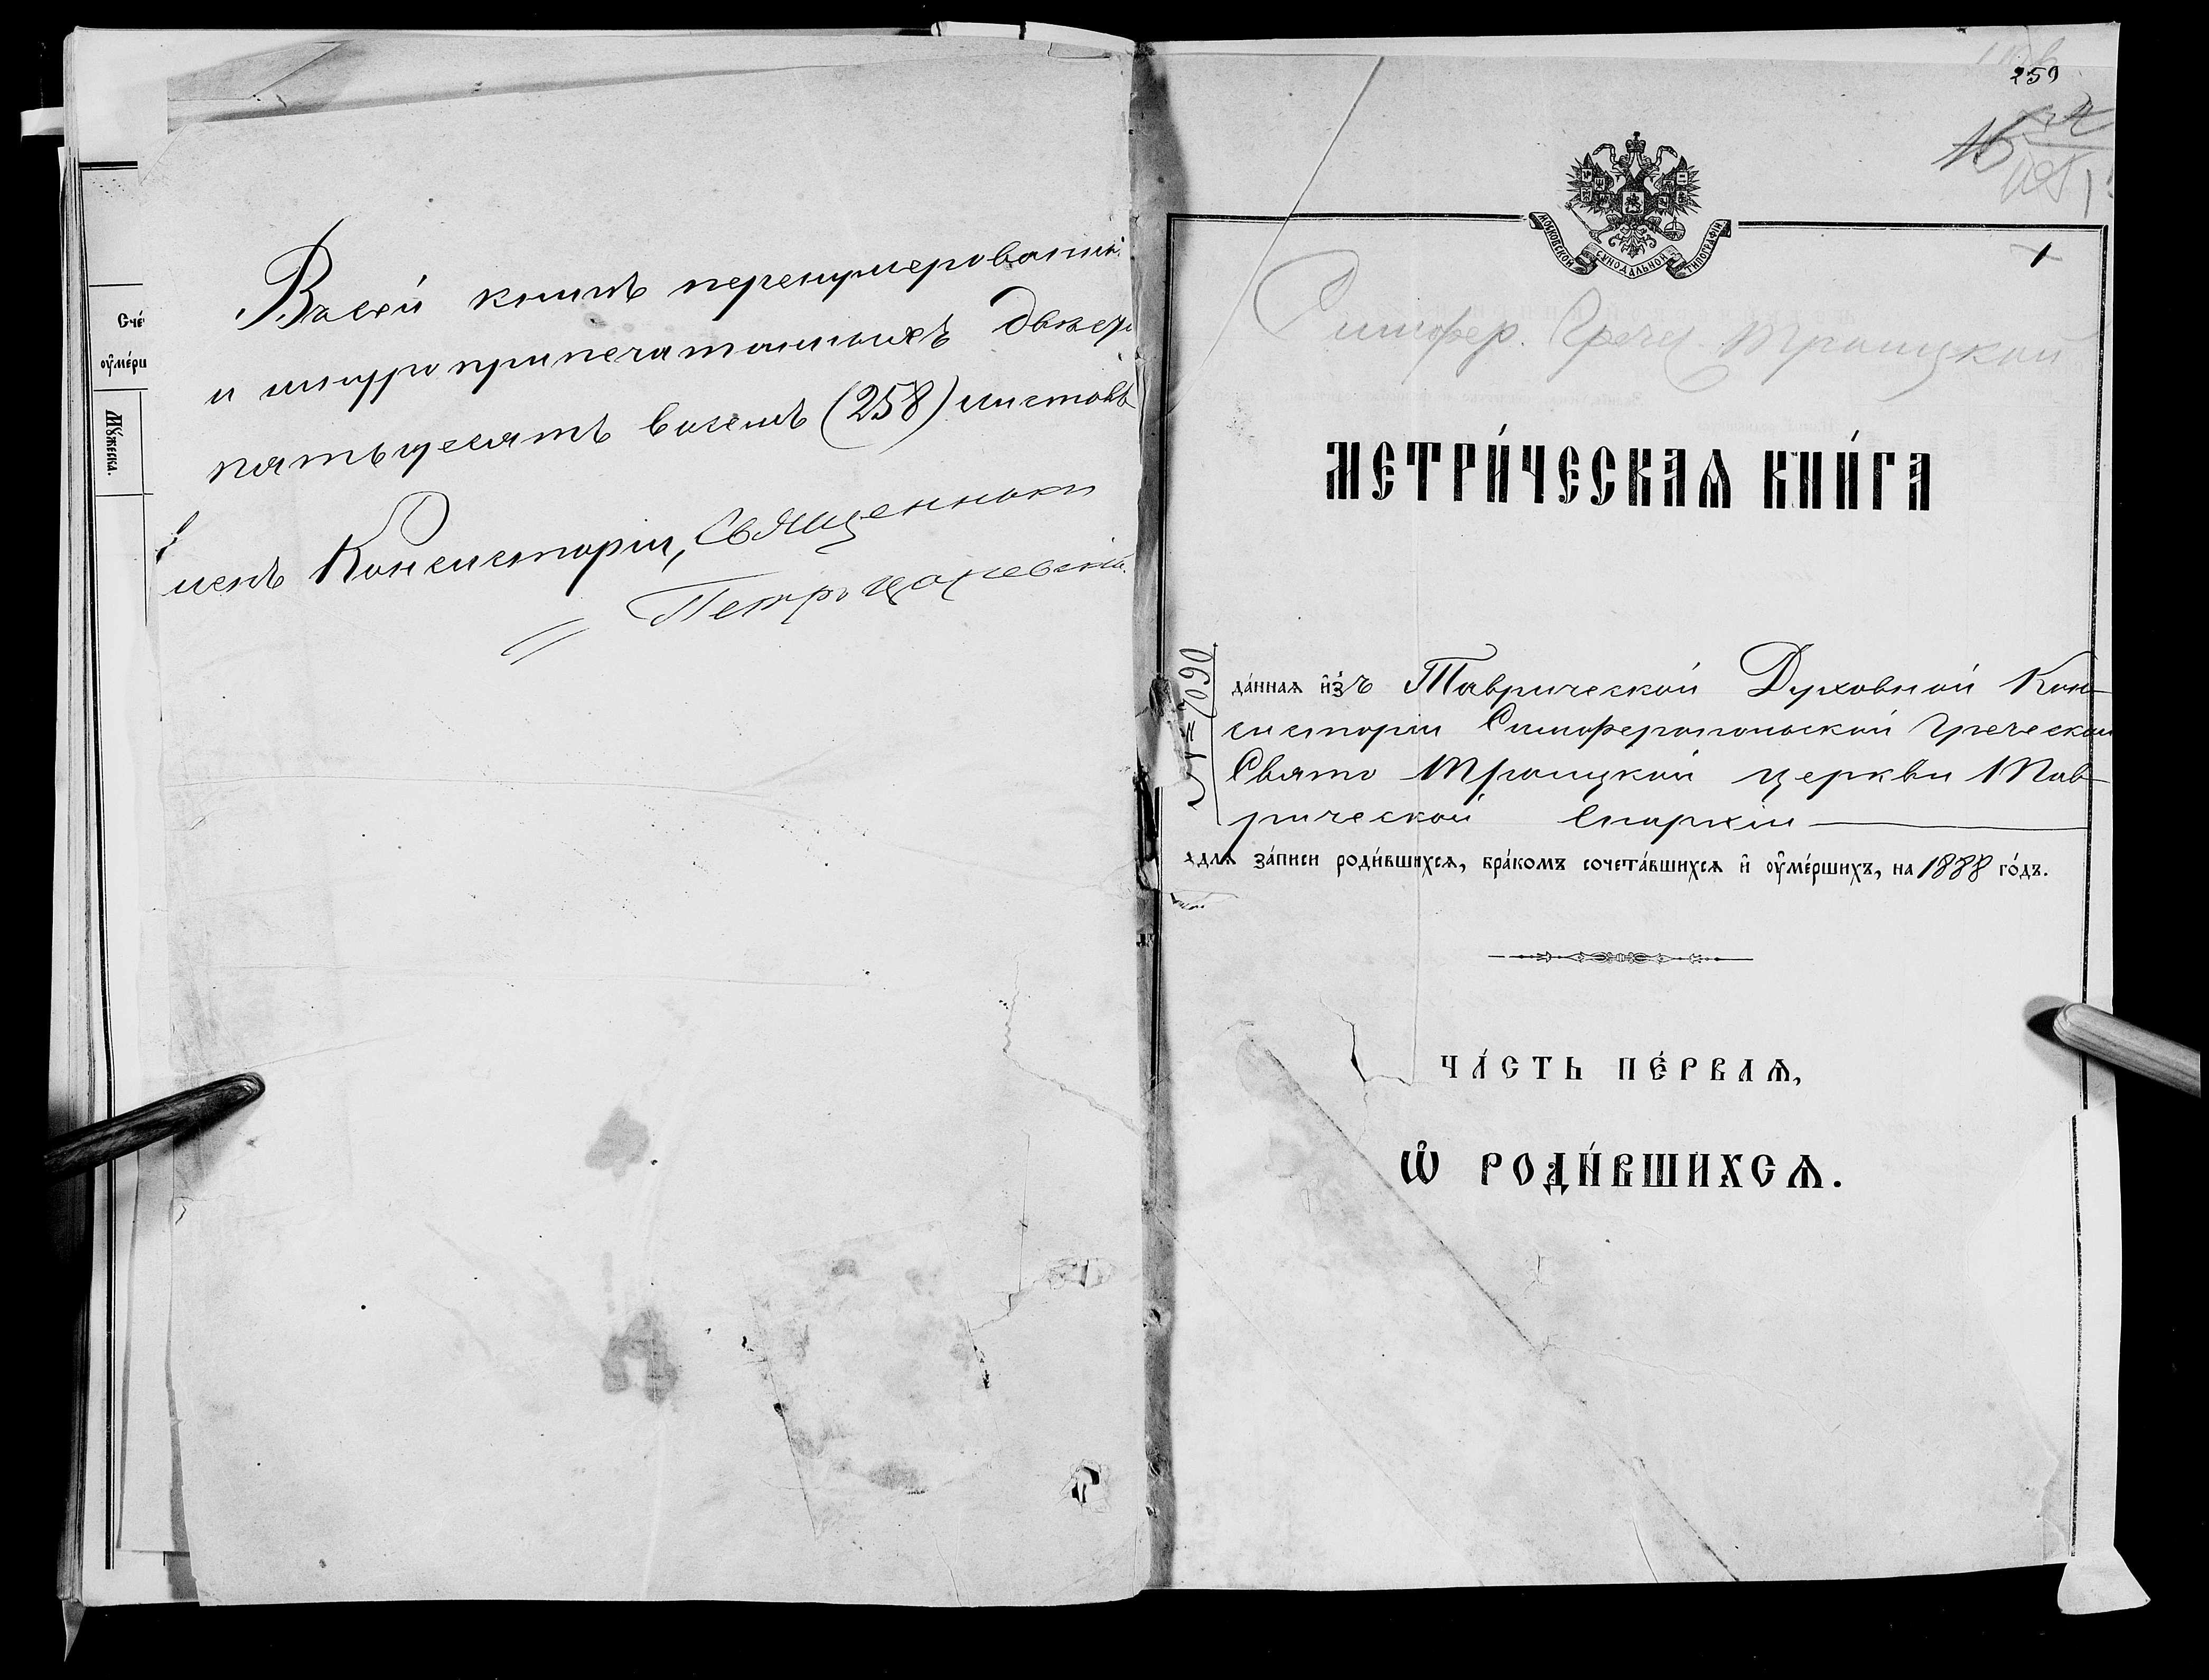 Счé
оу҆мéрш
Мýжеска.
Въ сей книгѣ перенумерованныхъ
и шнуроприпечатанныхъ двѣсти
пятьдесятъ восемь (258) листовъ
членъ Консисторіи, Священникъ
Петръ
259
МОСКОВСКОЙ СѴНОДАЛЬНОЙ ТИПОГРАФІИ
1
Симфер. Греч. Троицкой
МЕТРИ́ЧЕСКАѦ КНИ́ГА
№ 7090
дáннаѧ и҆зъ Таврической Духовной Кон-
систоріи Симферопольской Греческой
Свято Троицкой церкви Тав-
рической Епархіи
длѧ зáписи роди́вшихсѧ, брáкомъ сочетáвшихсѧ и҆ оу҆мéршихъ, на 1888 гóдъ.
ЧÁСТЬ ПÉРВАѦ,
Ѽ РОДИ́ВШИХСѦ.